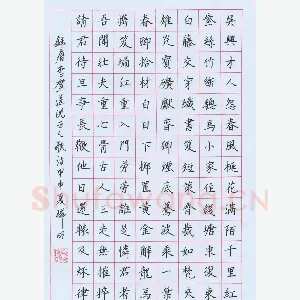 吳興才人怨春風桃花滿陌千里紅
紫絲竹斷驄馬小家住錢塘東復東
白藤交穿織書笈短策齊裁如梵夾
雄光寶礦獻春卿煙底驀波乘一葉
春卿拾材白日下擲置黃金解龍馬
攜笈歸江重入門勞勞誰是憐君者
吾聞壯夫重心骨古人三走無摧捽
請君待旦事長鞭他日還轅及秋律
錄唐李賀送沈亞之歌